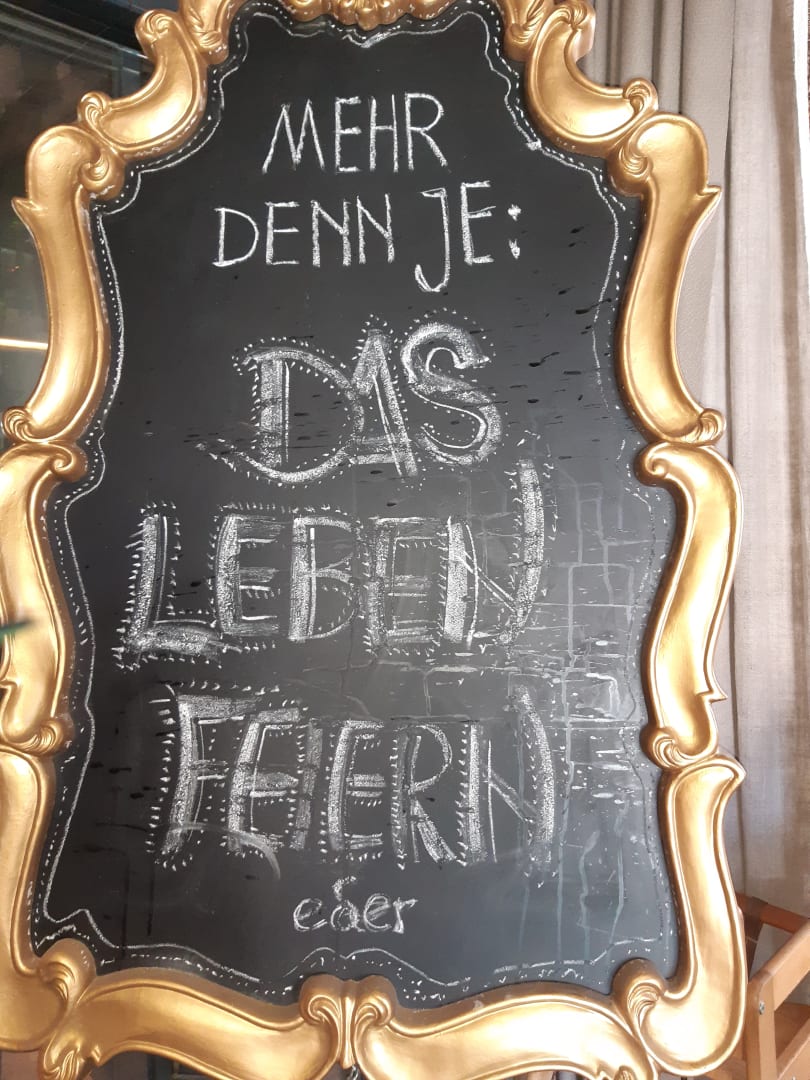 MEHR
DENN JE:
DAS
LEBEN
FEIERN
eder